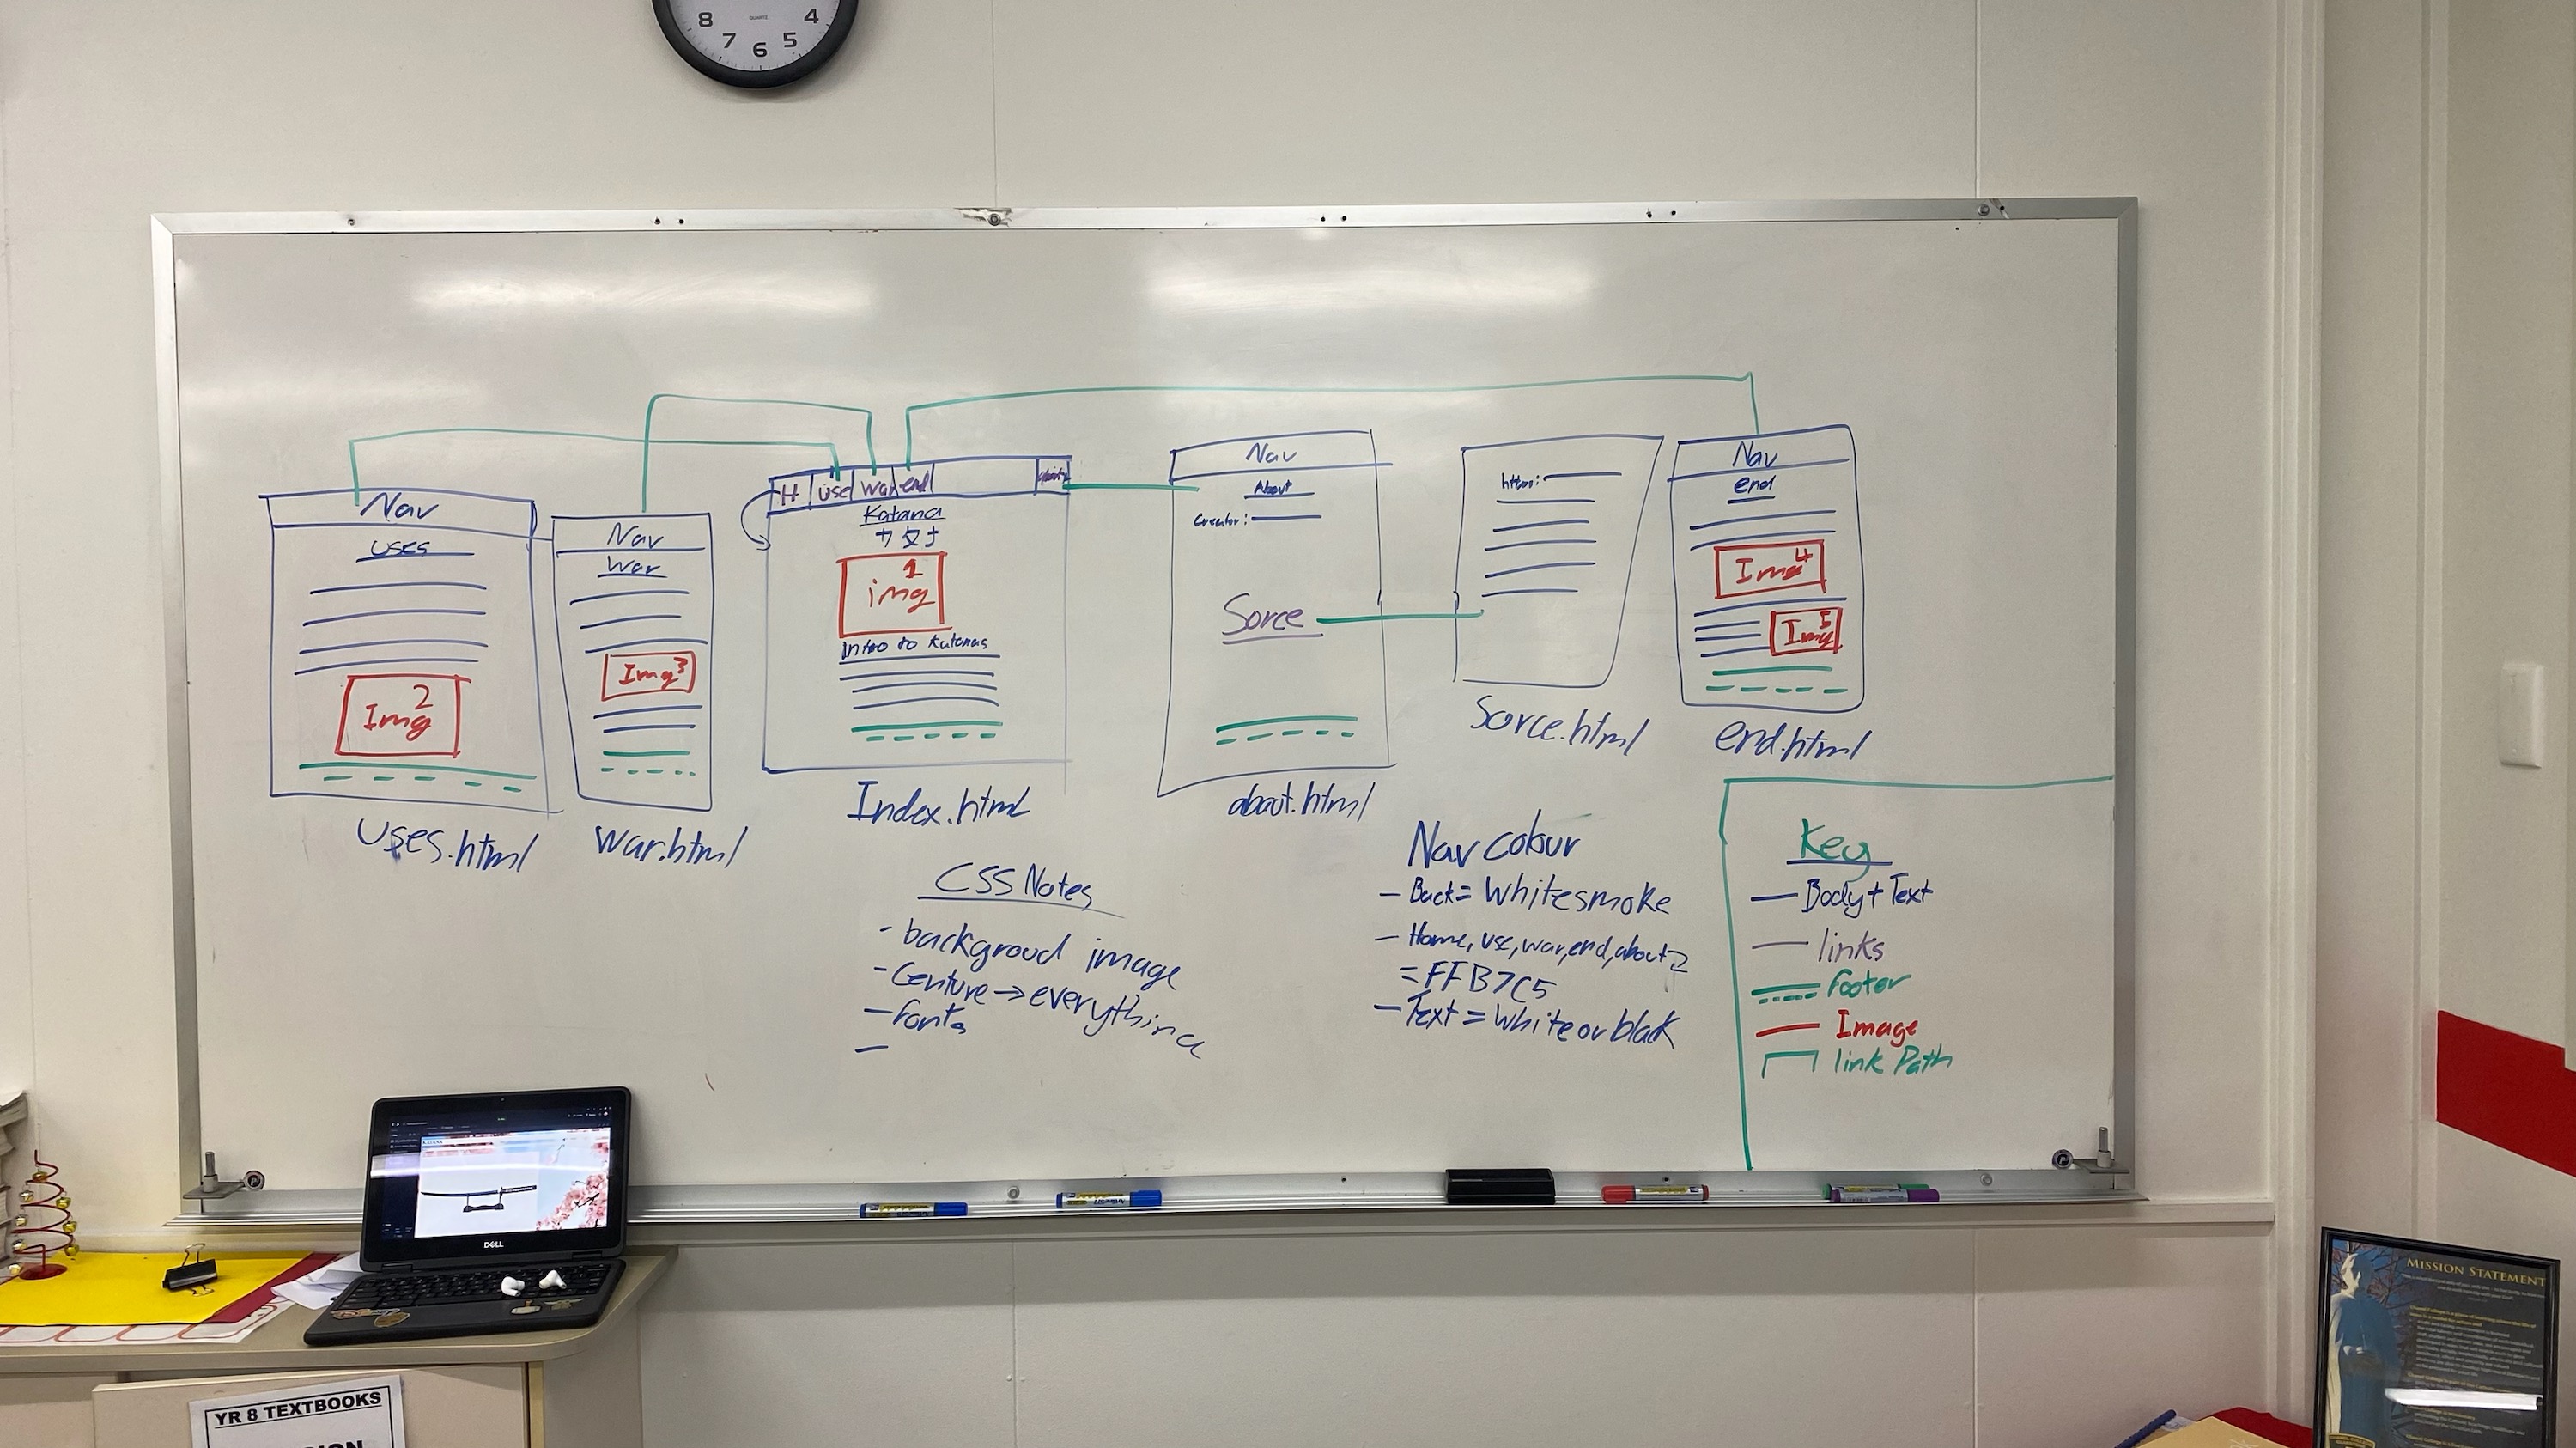 8 QUARTZ 4
7 6 5
Nav
uses
Img 2
Uses.html
Nav
War
Img 3
War.html
H use war end about
Katana
img 1
Intro to Katanas
Index.html
Nav
About
Creator:
Sorce
about.html
https:
Sorce.html
Nav
end
Img 4
Img 5
end.html
CSS Notes
- backgroud image
- Centure → everything
- fonts
-
Nav colour
- Back = Whitesmoke
- Home, use, war, end, about
= FFB7C5
- Text = White or blak
Key
Body + Text
links
footer
Image
link Path
KATANA
DELL
YR 8 TEXTBOOKS
MISSION STATEMENT